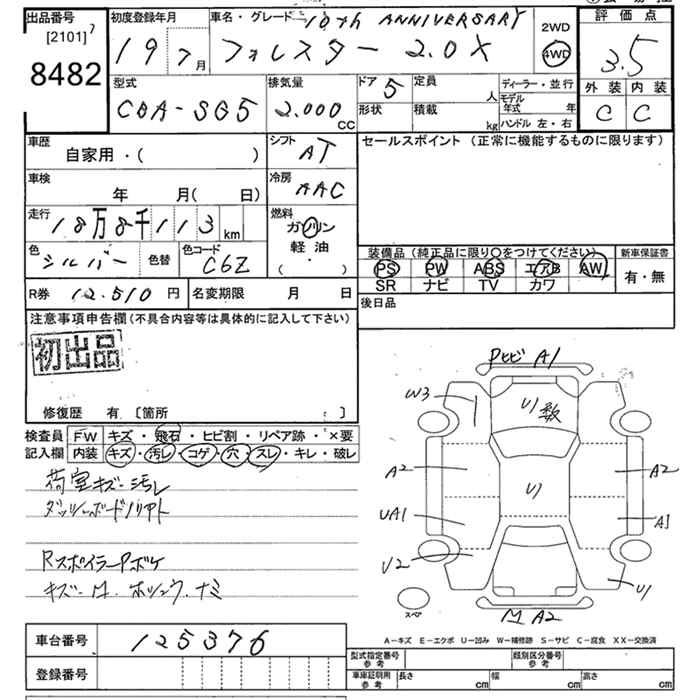 出品番号
[2101]
8482
初度登録年月
19 7月
車名・グレード 10th ANNIVERSARY
フォレスター 2.0X
2WD
4WD
評価点
3.5
外装 内装
C C
型式
CBA-SG5
排気量
2.000 CC
ドア 5
形状
定員 人
積載 kg
ディーラー・並行
モデル年式 年
ハンドル 左・右
車歴
自家用・( )
シフト
AT
セールスポイント (正常に機能するものに限ります)
車検
年 月( 日)
冷房
AAC
走行
18万8千113 km
燃料
ガソリン
軽油
・
( )
色
シルバー
色替
色コード
C6Z
装備品 (純正品に限り○をつけてください)
新車保証書
PS PW ABS エアB AW
SR ナビ TV カワ
有・無
R券 12.510 円
名変期限 月 日
後日品
注意事項申告欄 (不具合内容等は具体的に記入して下さい)
初出品
修復歴 有 〔箇所 〕
検査員 FW キズ・飛石・ヒビ割・リペア跡・×要
記入欄 内装 キズ・汚レ・コゲ・穴・スレ・キレ・破レ
荷室キズ・汚レ
ダッシュボードノリアト
RスポイラーPボケ
Pヒビ A1
W3
U1 数
A2
U1
A2
UA1
A1
U2
U1
スペア
A2
A-キズ E-エクボ U-凹み W-補修跡 S-サビ C-腐食 XX-交換済
車台番号 125376
登録番号
型式指定番号 参考
類別区分番号 参考
車庫証明用 参考
長さ cm
幅 cm
高さ cm